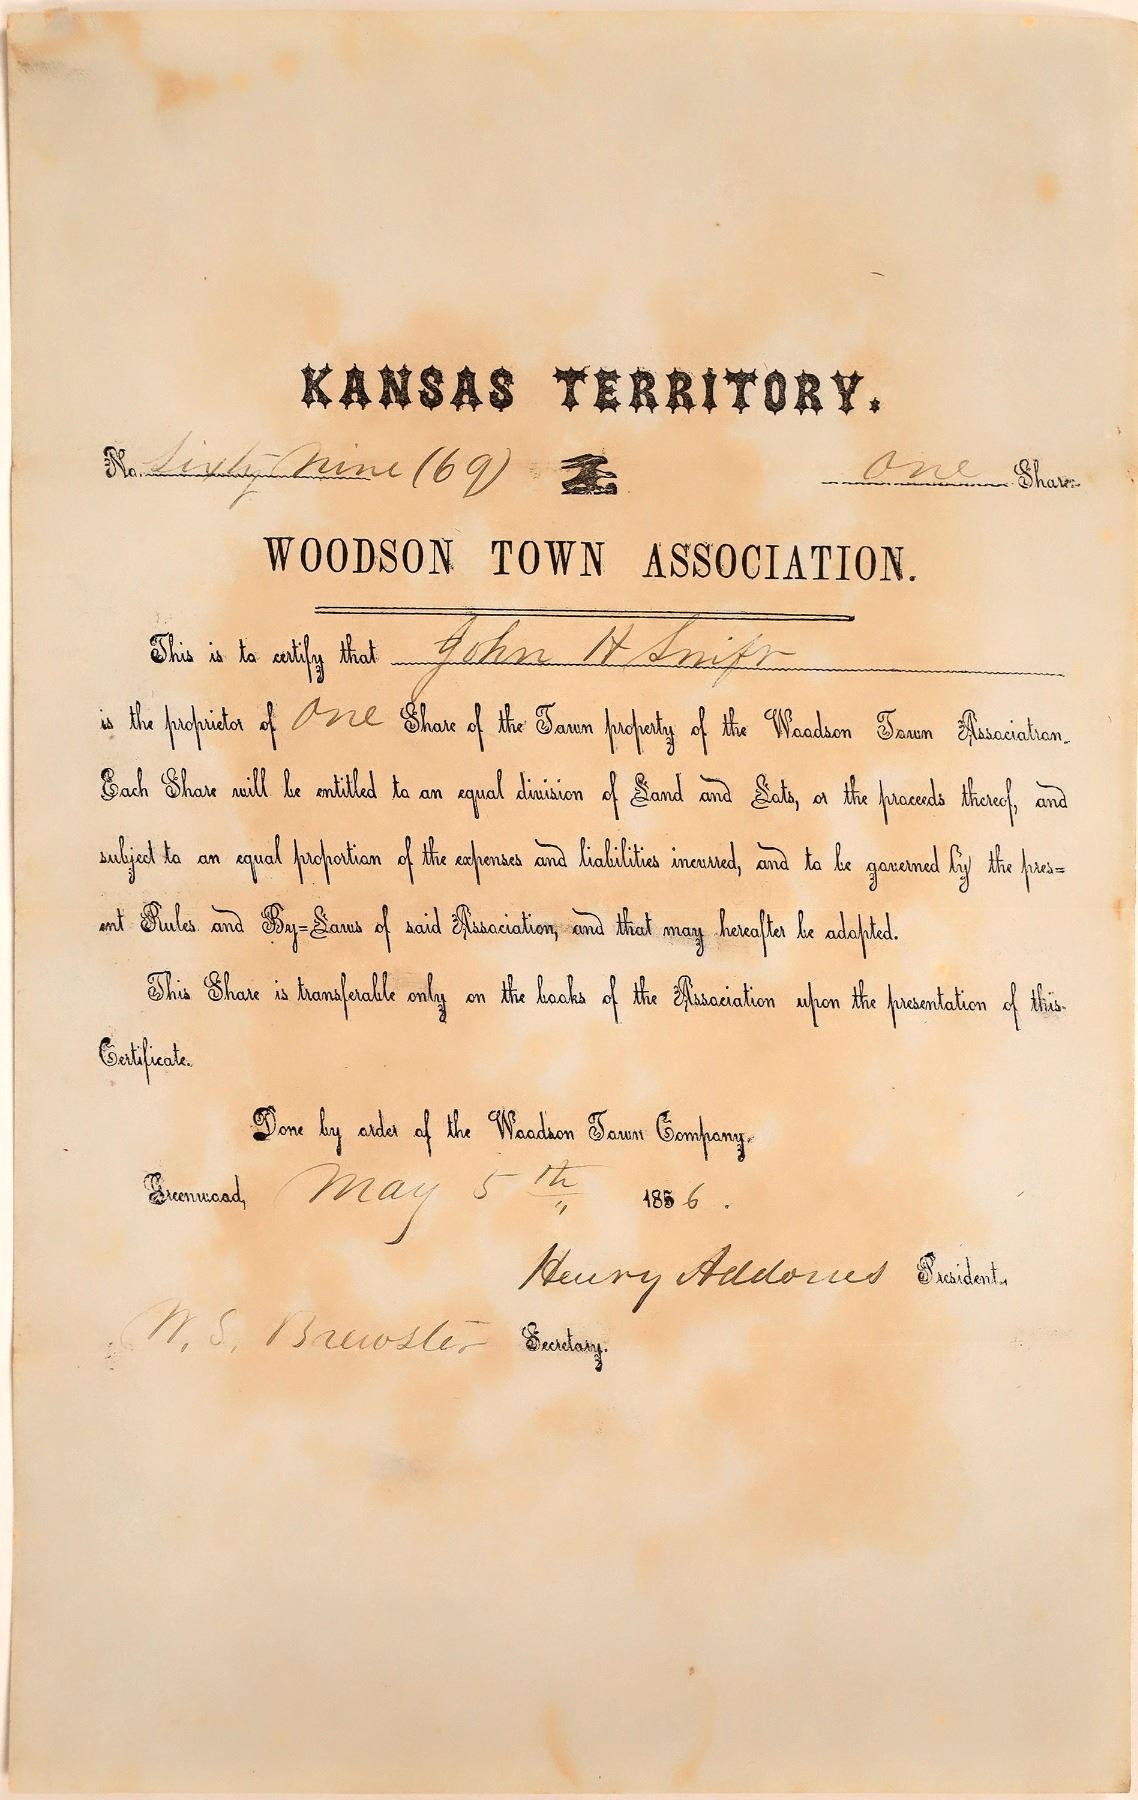 KANSAS TERRITORY.
No. Sixty Nine (69) One Share
WOODSON TOWN ASSOCIATION.
This is to certify that John H
is the proprietor of One Share of the Town property of the Woodson Town Association.
Each Share will be entitled to an equal division of Land and Lots, or the proceeds thereof, and
subject to an equal proportion of the expenses and liabilities incurred, and to be governed by the pres=
ent Rules and By=Laws of said Association, and that may hereafter be adopted.
This Share is transferable only on the books of the Association upon the presentation of this
Certificate.
Done by order of the Woodson Town Company.
Greenwood, May 5th 1856.
Henry Addoms President.
W. S. Brewster Secretary.